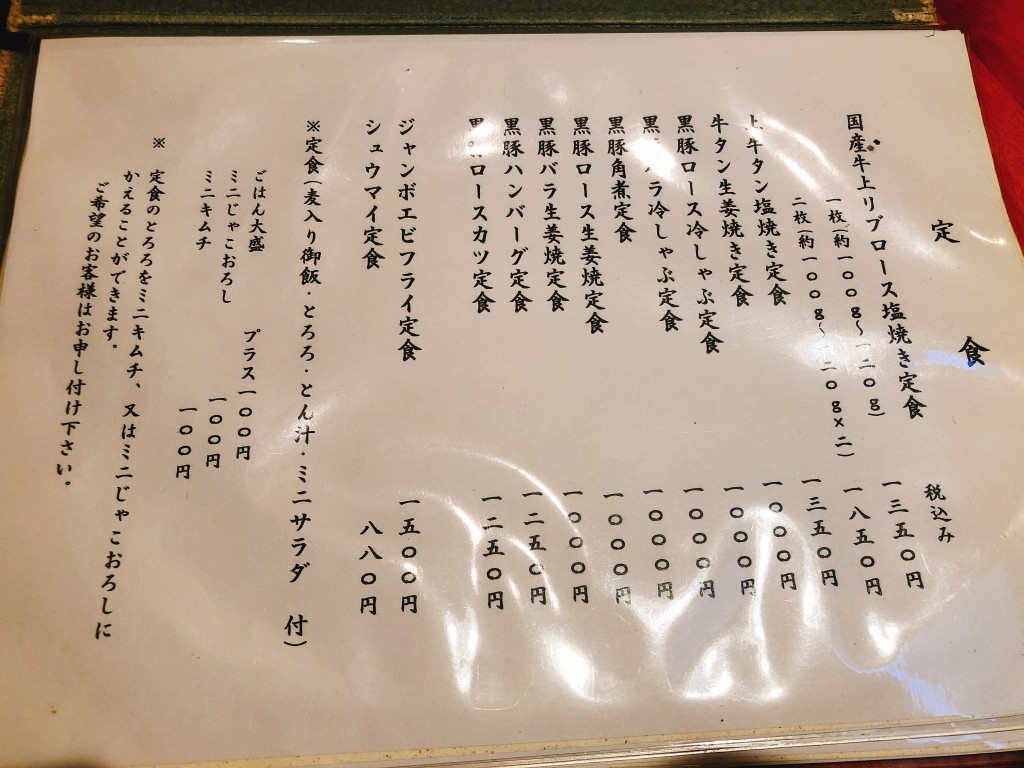 定食
税込み
国産牛上リブロース塩焼き定食
一枚(約一〇〇g〜一二〇g) 一三五〇円
二枚(約一〇〇g〜一二〇g×二) 一八五〇円
上牛タン塩焼き定食 一三五〇円
牛タン生姜焼き定食 一〇〇〇円
黒豚ロース冷しゃぶ定食 一〇〇〇円
黒豚バラ冷しゃぶ定食 一〇〇〇円
黒豚角煮定食 一〇〇〇円
黒豚ロース生姜焼定食 一〇〇〇円
黒豚バラ生姜焼定食 一〇〇〇円
黒豚ハンバーグ定食 一二五〇円
黒豚ロースカツ定食 一二五〇円
ジャンボエビフライ定食 一五〇〇円
シュウマイ定食 八八〇円
※定食(麦入り御飯・とろろ・とん汁・ミニサラダ 付)
ごはん大盛 プラス一〇〇円
ミニじゃこおろし 一〇〇円
ミニキムチ 一〇〇円
※ 定食のとろろをミニキムチ、又はミニじゃこおろしに
かえることができます。
ご希望のお客様はお申し付け下さい。